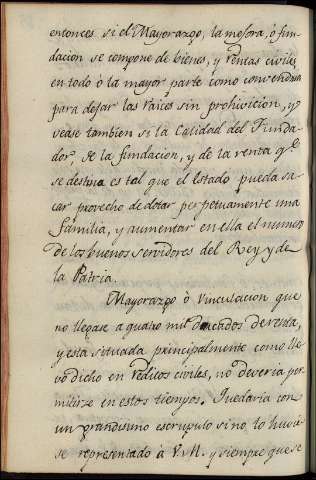 entonces si el Mayorazgo, la mejora, ó fun-
dacion se compone de bienes, y rentas civiles
en todo ò la mayor parte como convendria
para dejar las raices sin prohivicion, y
vease tambien si la Calidad del Funda-
dor, de la fundacion, y de la renta q.e
se destina es tal que el Estado pueda sa-
car provecho de dotar perpetuamente una
familia, y aumentar en ella el numero
de los buenos servidores del Rey y de
la Patria.
Mayorazgo ò vinculacion que
no llegase a quatro mil ducados de renta,
y esta situada principalmente como lle-
vo dicho en reditos civiles, no deveria per-
mitirse en estos tiempos. Quedaria con
un grandisimo escrupulo si no lo huvie-
se representado à V.M. y siempre que se